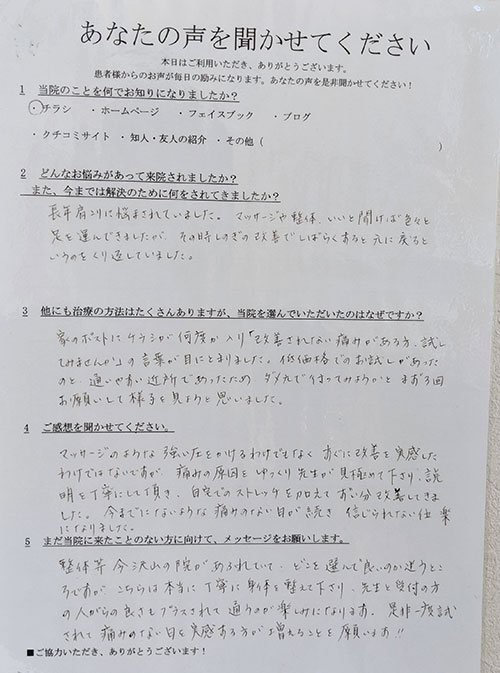 あなたの声を聞かせてください
本日はご利用いただき、ありがとうございます。
患者様からのお声が毎日の励みになります。あなたの声を是非聞かせてください！
1 当院のことを何でお知りになりましたか？
・チラシ ・ホームページ ・フェイスブック ・ブログ
・クチコミサイト ・知人・友人の紹介 ・その他（ ）
2 どんなお悩みがあって来院されましたか？
また、今までは解決のために何をされてきましたか？
長年肩コリに悩まされていました。マッサージや整体、いいと聞けば色々と
足を運んできましたが、その時しのぎの改善でしばらくすると元に戻ると
いうのをくり返していました。
3 他にも治療の方法はたくさんありますが、当院を選んでいただいたのはなぜですか？
家のポストにチラシが何度か入り「改善されない痛みがある方、試し
てみませんか」の言葉が目にとまりました。低価格でのお試しがあった
のと、通いやすい近所であったため、ダメ元で行ってみようかと まず3回
お願いして様子を見ようと思いました。
4 ご感想を聞かせてください。
マッサージのような強い圧をかけるわけでもなく すぐに改善を実感した
わけではないですが、痛みの原因をゆっくり先生が見極めて下さり、説
明を丁寧にして頂き、自宅でのストレッチを加えてずい分改善してきま
した。今までにないような痛みのない日が続き 信じられない位 楽
になりました。
5 まだ当院に来たことのない方に向けて、メッセージをお願いします。
整体等 今沢山の院があふれていて、どこを選んで良いのか迷うと
ころですが、こちらは本当に丁寧に身体を整えて下さり、先生と受付の方
の人がらの良さもプラスされて通うのが楽しみになります。是非一度試
されて痛みのない日を実感する方が増えることを願います!!
■ご協力いただき、ありがとうございます！